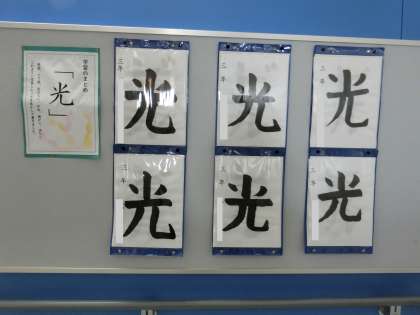 学習のまとめ
「光」
三年
光
三年
光
三年
光
三年
光
三年
光
三年
光